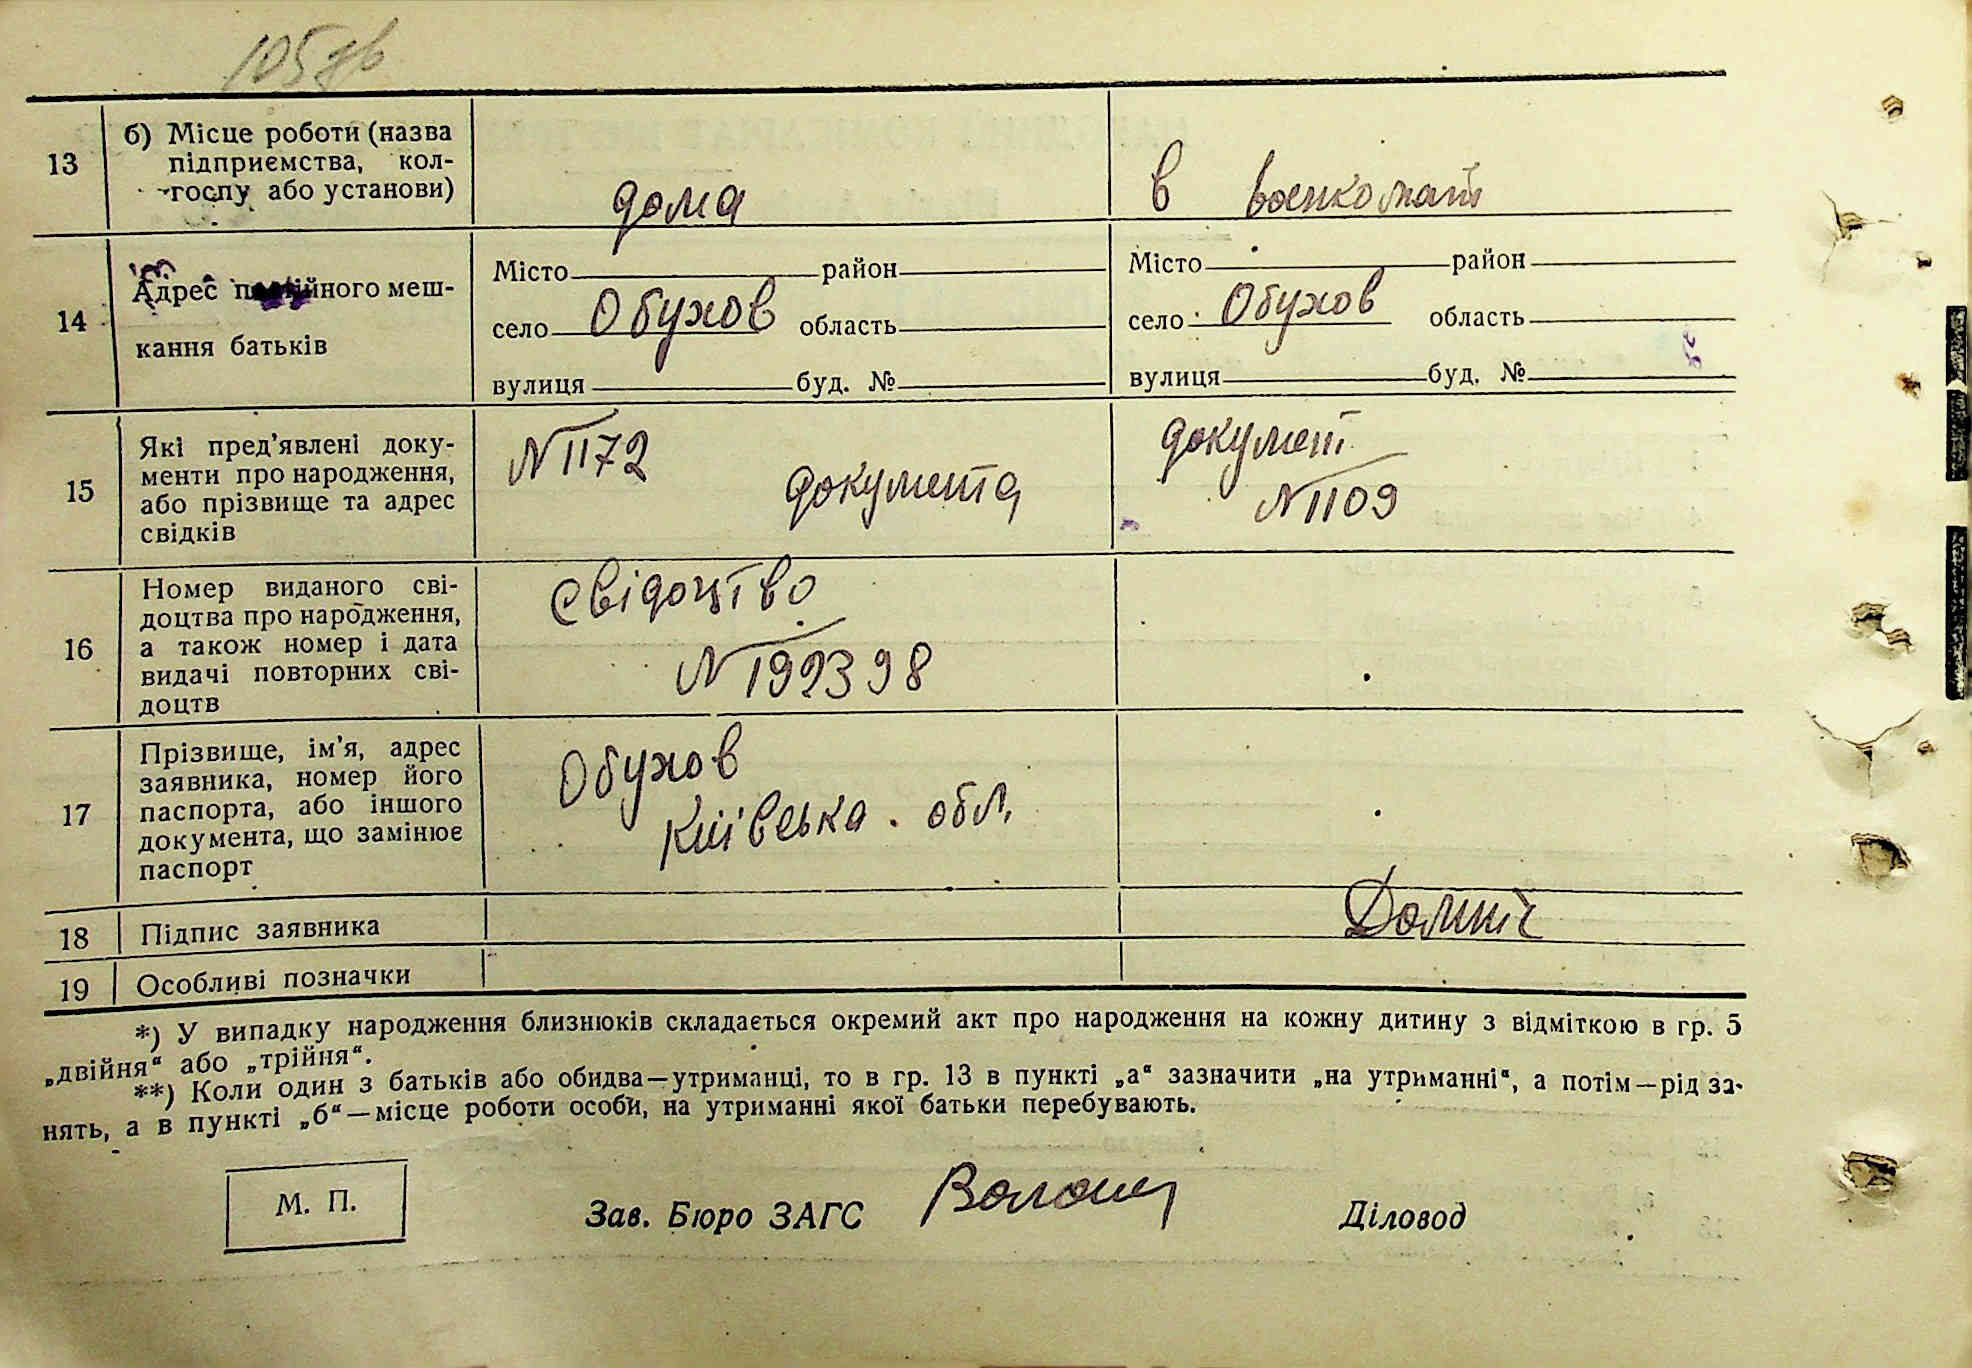 105 зв
13 б) Місце роботи (назва
підприємства, кол-
госпу або установи) дома в воєнкоматі
14 Адрес постійного меш-
кання батьків
Місто район
село Обухов область
вулиця буд. №
Місто район
село Обухов область
вулиця буд. №
15 Які пред'явлені доку-
менти про народження,
або прізвище та адрес
свідків
№ 1172
документа
документ
№ 1109
16 Номер виданого сві-
доцтва про народження,
а також номер і дата
видачі повторних сві-
доцтв
Свідоцтво
№ 192398
17 Прізвище, ім'я, адрес
заявника, номер його
паспорта, або іншого
документа, що замінює
паспорт
Обухов
Київська обл.
18 Підпис заявника
19 Особливі позначки
*) У випадку народження близнюків складається окремий акт про народження на кожну дитину з відміткою в гр. 5
„двійня“ або „трійня“.
**) Коли один з батьків або обидва—утриманці, то в гр. 13 в пункті „а“ зазначити „на утриманні“, а потім—рід за-
нять, а в пункті „б“—місце роботи особи, на утриманні якої батьки перебувають.
М. П. Зав. Бюро ЗАГС Діловод